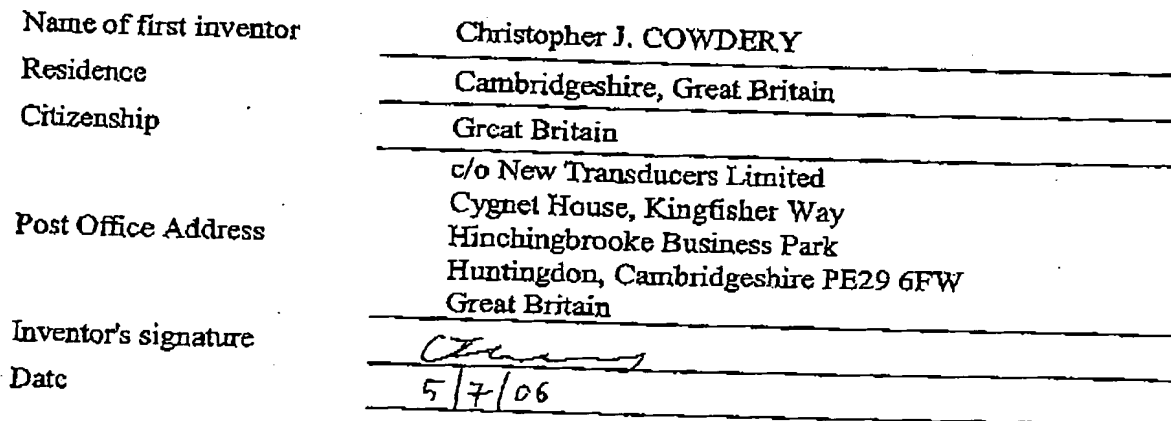 Name of first inventor Christopher J. COWDERY
Residence Cambridgeshire, Great Britain
Citizenship Great Britain
c/o New Transducers Limited
Cygnet House, Kingfisher Way
Post Office Address Hinchingbrooke Business Park
Huntingdon, Cambridgeshire PE29 6FW
Great Britain
Inventor's signature
Date 5/7/06